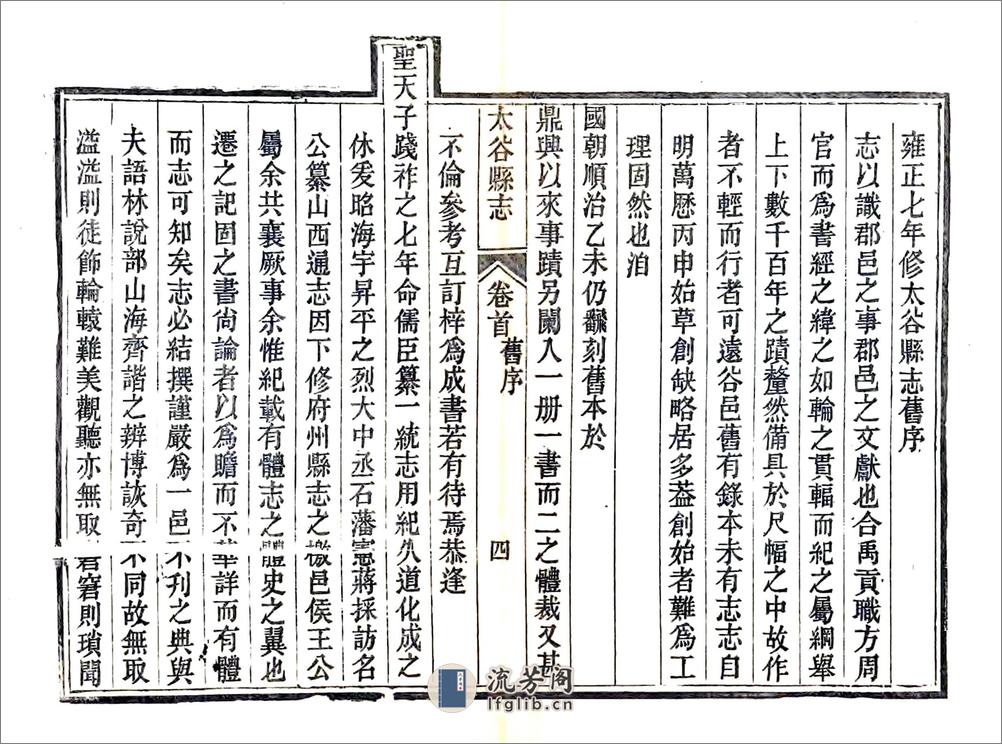 雍正七年修太谷縣志舊序
志以識郡邑之事郡邑之文獻也合禹貢職方周
官而爲書經之緯之如輪之貫輻而紀之屬綱舉
上下數千百年之蹟釐然備具於尺幅之中故作
者不輕而行者可遠谷邑舊有錄本未有志志自
明萬歷丙申始草創缺略居多葢創始者難爲工
理固然也洎
國朝順治乙未仍翻刻舊本於
鼎興以來事蹟另闌入一册一書而二之體裁又甚
太谷縣志
卷首
舊序
四
不倫參考互訂梓爲成書若有待焉恭逢
聖天子踐祚之七年命儒臣纂一統志用紀久道化成之
休爰昭海宇昇平之烈大中丞石藩憲蔣採訪名
公纂山西通志因下修府州縣志之檄邑侯王公
屬余共襄厥事余惟紀載有體志之體史之翼也
遷之記固之書尙論者以爲贍而不華詳而有體
而志可知矣志必結撰謹嚴爲一邑不刊之典與
夫語林說部山海齊諧之辨博詼奇不同故無取
溢溢則徒飾輪轅難美觀聽亦無取窘窘則瑣聞
流芳阁
lfglib.cn